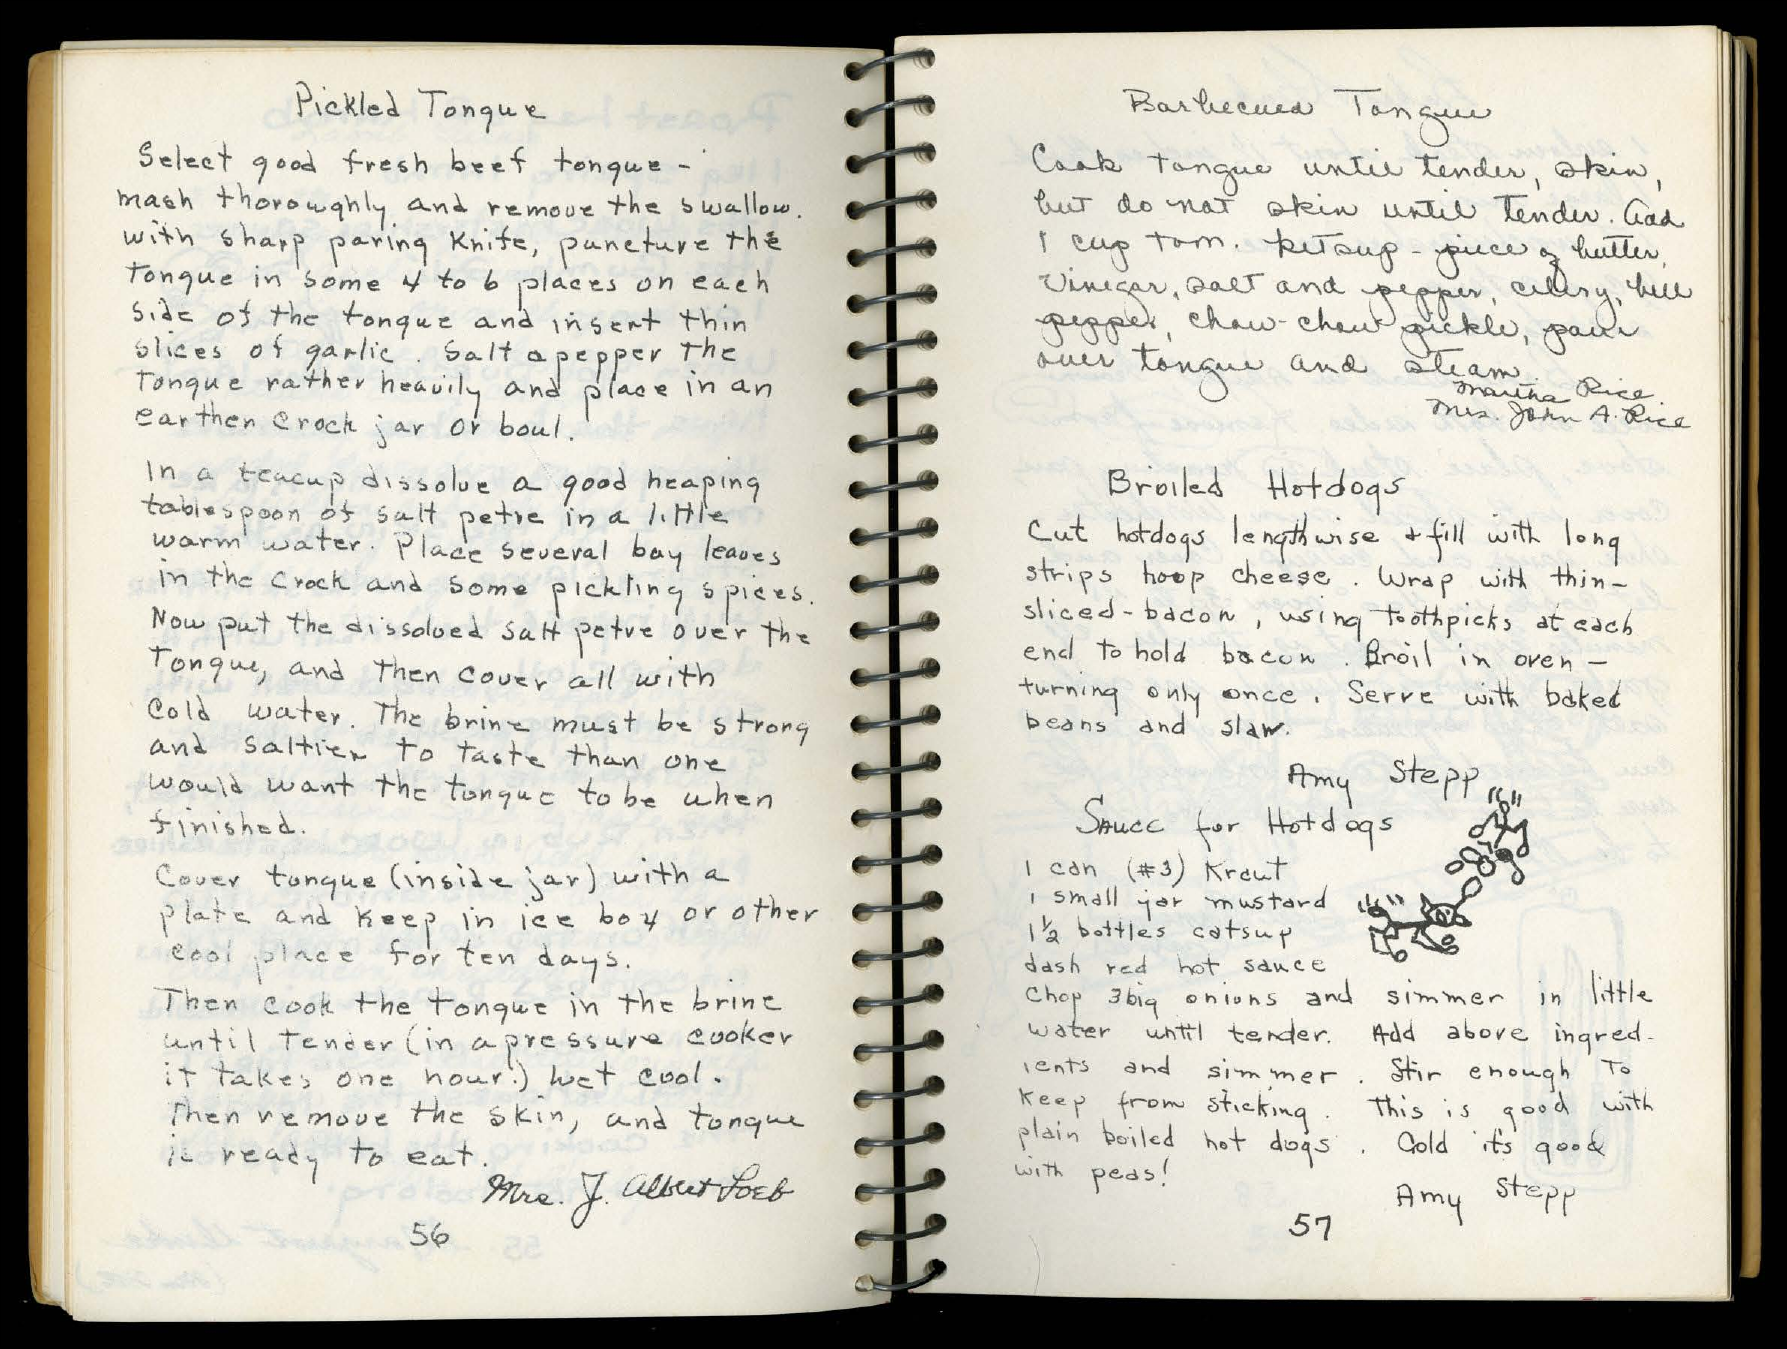 Pickled Tongue
Select good fresh beef tongue -
mash thoroughly and remove the swallow.
with sharp paring knife, puncture the
tongue in some 4 to 6 places on each
side of the tongue and insert thin
slices of garlic. Salt & pepper the
tongue rather heavily and place in an
earthen crock jar or boul.
In a teacup dissolve a good heaping
tablespoon of salt petre in a little
warm water. Place several bay leaves
in the crock and some pickling spices.
Now put the dissolved salt petre over the
tongue, and then cover all with
cold water. The brine must be strong
and saltier to taste than one
would want the tongue to be when
finished.
Cover tongue (inside jar) with a
plate and keep in ice box or other
cool place for ten days.
Then cook the tongue in the brine
until tender (in a pressure cooker
it takes one hour.) Let cool.
Then remove the skin, and tongue
is ready to eat.
Mrs. J. Albert Loeb
56
Barbecued Tongue
Cook tongue until tender, skin,
but do not skin until tender. Add
1 cup tom. ketsup - piece of butter,
vinegar, salt and pepper, celery, bell
pepper, chow-chow pickle, pour
over tongue and steam.
Martha Rice
Mrs. John A. Rice
Broiled Hotdogs
Cut hotdogs lengthwise & fill with long
strips hoop cheese. Wrap with thin-
sliced-bacon, using toothpicks at each
end to hold bacon. Broil in oven -
turning only once. Serve with baked
beans and slaw.
Amy Stepp
Sauce for Hotdogs
1 can (#3) Kraut
1 small jar mustard
1 1/2 bottles catsup
dash red hot sauce
Chop 3 big onions and simmer in little
water until tender. Add above ingred-
ients and simmer. Stir enough to
keep from sticking. This is good with
plain boiled hot dogs. Cold it's good
with peas!
Amy Stepp
57